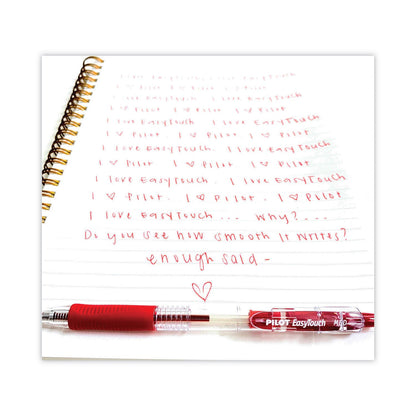 I love EasyTouch I love EasyTouch
I ♡ Pilot I ♡ Pilot I ♡ Pilot
I love EasyTouch I love EasyTouch
I ♡ Pilot I ♡ Pilot I ♡ Pilot
I love EasyTouch. I love EasyTouch
I ♡ Pilot I ♡ Pilot I ♡ Pilot
I love EasyTouch. I love EasyTouch.
I ♡ Pilot. I ♡ Pilot. I ♡ Pilot
I love EasyTouch... Why?...
Do you see how smooth it writes?
enough said-
♡
PILOT EasyTouch MED